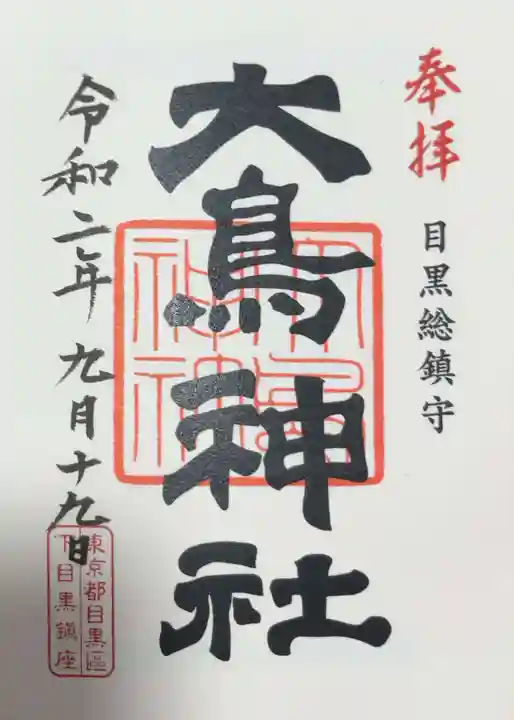 奉拝
目黒総鎮守
大鳥神社
令和二年九月十九日
東京都目黒區
下目黒鎮座